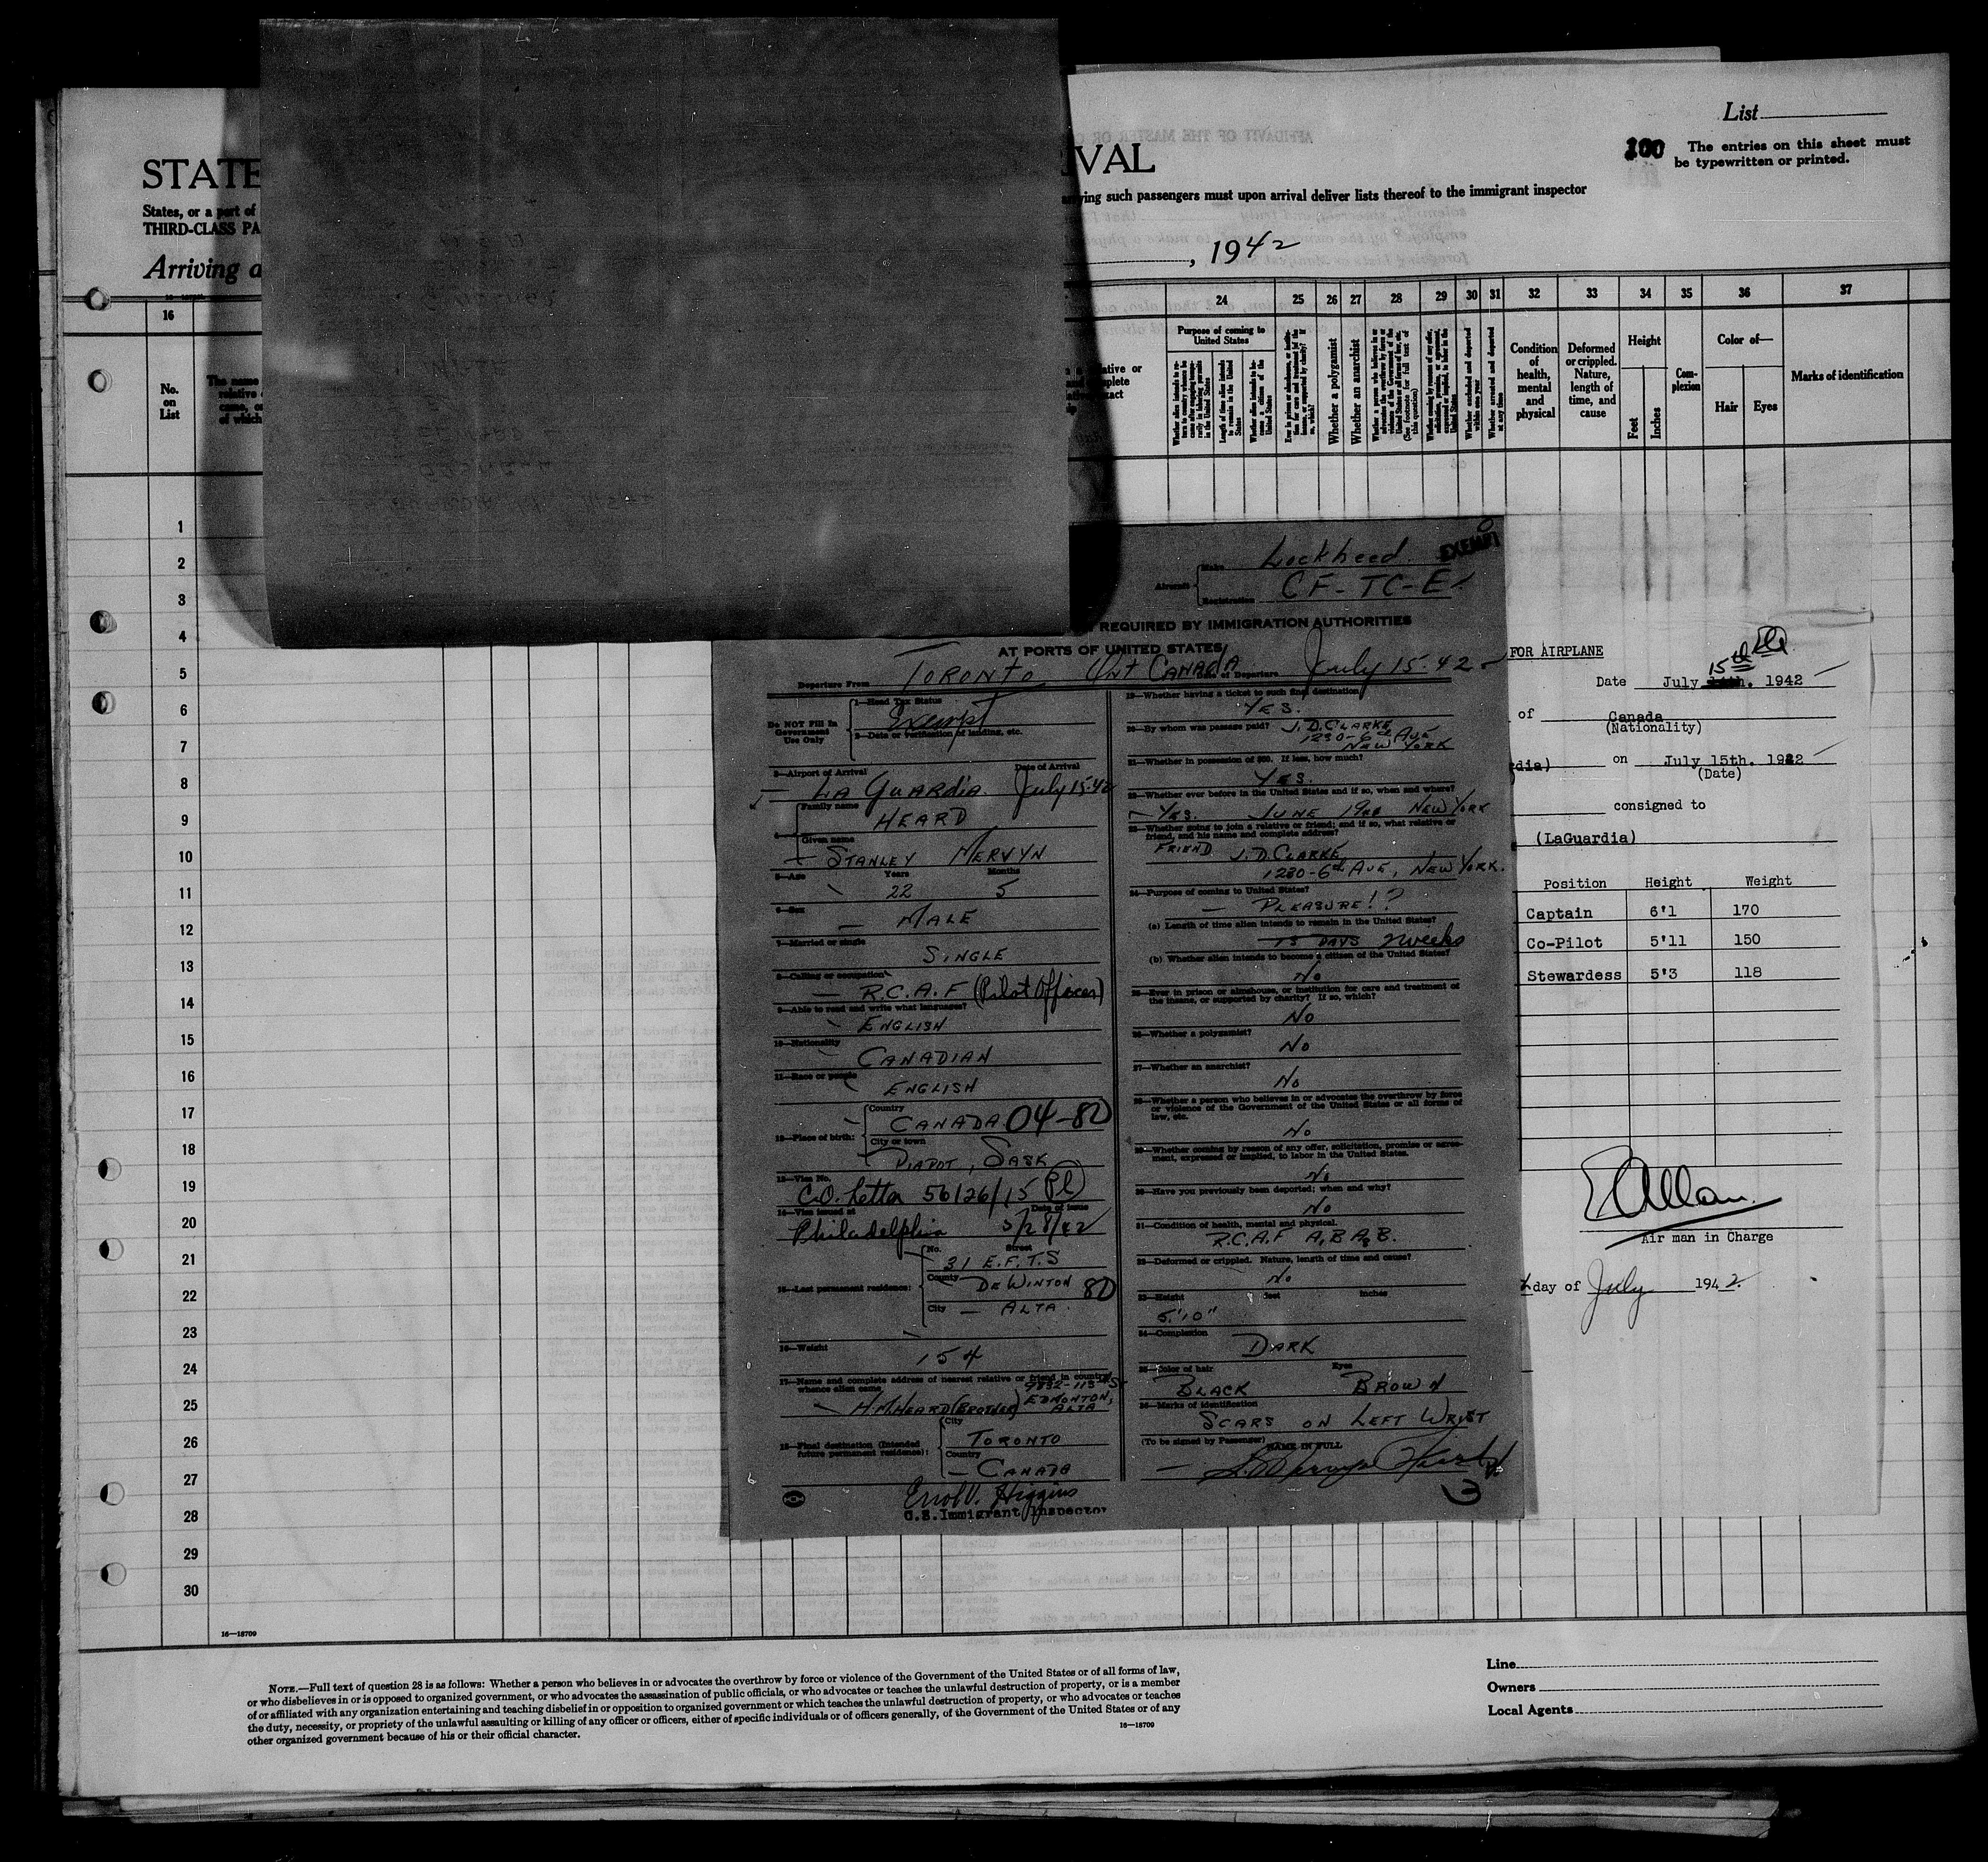 List
100 The entries on this sheet must
be typewritten or printed.
STATE
IVAL
States, or a part of
such passengers must upon arrival deliver lists thereof to the immigrant inspector
THIRD-CLASS PA
Arriving a
, 1942
16
24 25 26 27 28 29 30 31 32 33 34 35 36 37
No.
on
List
Purpose of coming to
United States
Whether a polygamist
Whether an anarchist
Condition
of
health,
mental
and
physical
Deformed
or crippled.
Nature,
length of
time, and
cause
Height
Feet
Inches
Com-
plexion
Color of—
Hair Eyes
Marks of identification
1
2
3
4
5
6
7
8
9
10
11
12
13
14
15
16
17
18
19
20
21
22
23
24
25
26
27
28
29
30
16—18709
EXEMPT
Aircraft
Make Lockheed.
Registration CF-TC-E
REQUIRED BY IMMIGRATION AUTHORITIES
AT PORTS OF UNITED STATES
Departure From TORONTO Ont CANADA Date of Departure July 15-42
Do NOT Fill In
Government
Use Only
1—Head Tax Status
Exempt
2—Date or verification of landing, etc.
3—Airport of Arrival Date of Arrival
LA GUARDIA. July 15-42
Family name
HEARD
Given name
STANLEY MERVYN
5—Age Years Months
22 5
6—Sex
MALE
7—Married or single
SINGLE
8—Calling or occupation
R.C.A.F (Pilot Officer)
9—Able to read and write what languages?
ENGLISH
10—Nationality
CANADIAN
11—Race or people
ENGLISH
12—Place of birth:
Country
CANADA 04-80
City or town
PIAPOT, SASK
13—Visa No.
C.O. Letter 56126/15 Pl
14—Visa issued at Date of issue
Philadelphia 5/28/42
15—Last permanent residence:
No. Street
31 E.F.T.S
County
DE WINTON 80
City
ALTA.
16—Weight
154
17—Name and complete address of nearest relative or friend in country
whence alien came
H.M. HEARD (BROTHER) 9832-113 St
EDMONTON,
ALTA
18—Final destination (Intended
future permanent residence):
City
TORONTO
Country
CANADA
Errol V. Higgins
U.S. Immigrant Inspector
19—Whether having a ticket to such final destination
YES.
20—By whom was passage paid? J.D. CLARKE
1230-6th AVE
NEW YORK
21—Whether in possession of $50. If less, how much?
YES.
22—Whether ever before in the United States and if so, when and where?
YES. JUNE NEW YORK
23—Whether going to join a relative or friend; and if so, what relative or
friend, and his name and complete address?
FRIEND J.D. CLARKE
1230-6th AVE, NEW YORK.
24—Purpose of coming to United States?
PLEASURE!?
(a) Length of time alien intends to remain in the United States?
15 DAYS 2 weeks
(b) Whether alien intends to become a citizen of the United States?
No
25—Ever in prison or almshouse, or institution for care and treatment of
the insane, or supported by charity? If so, which?
No
26—Whether a polygamist?
No
27—Whether an anarchist?
No
28—Whether a person who believes in or advocates the overthrow by force
or violence of the Government of the United States or all forms of
law, etc.
No
29—Whether coming by reason of any offer, solicitation, promise or agree-
ment, expressed or implied, to labor in the United States.
No
30—Have you previously been deported; when and why?
No
31—Condition of health, mental and physical.
R.C.A.F
32—Deformed or crippled. Nature, length of time and cause?
No
33—Height feet inches
5'10"
34—Complexion
DARK
35—Color of hair Eyes
BLACK BROWN
36—Marks of identification
SCARS ON LEFT WRIST
(To be signed by Passenger)
NAME IN FULL
S. Mervyn Heard
3
FOR AIRPLANE
Date July 15th. 1942
of Canada
(Nationality)
dia) on July 15th. 1942
(Date)
consigned to
(LaGuardia)
Position Height Weight
Captain 6'1 170
Co-Pilot 5'11 150
Stewardess 5'3 118
Allan
Air man in Charge
day of July 1942
NOTE.—Full text of question 28 is as follows: Whether a person who believes in or advocates the overthrow by force or violence of the Government of the United States or of all forms of law,
or who disbelieves in or is opposed to organized government, or who advocates the assassination of public officials, or who advocates or teaches the unlawful destruction of property, or is a member
of or affiliated with any organization entertaining and teaching disbelief in or opposition to organized government or which teaches the unlawful destruction of property, or who advocates or teaches
the duty, necessity, or propriety of the unlawful assaulting or killing of any officer or officers, either of specific individuals or of officers generally, of the Government of the United States or of any
other organized government because of his or their official character.
16—18709
Line
Owners
Local Agents